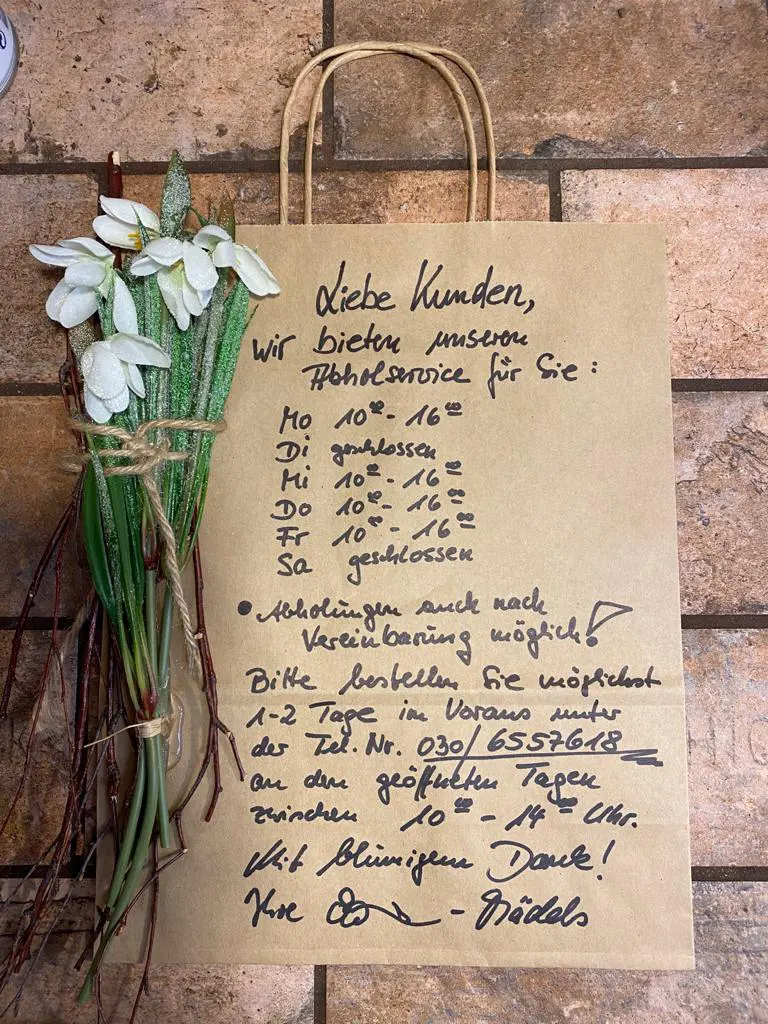 Liebe Kunden,
Wir bieten unseren
Abholservice für Sie:
Mo 10⁰⁰- 16⁰⁰
Di geschlossen
Mi 10⁰⁰- 16⁰⁰
Do 10⁰⁰- 16⁰⁰
Fr 10⁰⁰- 16⁰⁰
Sa geschlossen
• Abholungen auch nach
Vereinbarung möglich!
Bitte bestellen Sie möglichst
1-2 Tage im Voraus unter
der Tel. Nr. 030/6557618
an den geöffneten Tagen
zwischen 10⁰⁰ - 14⁰⁰ Uhr.
Mit blumigem Dank!
Ihre - Mädels